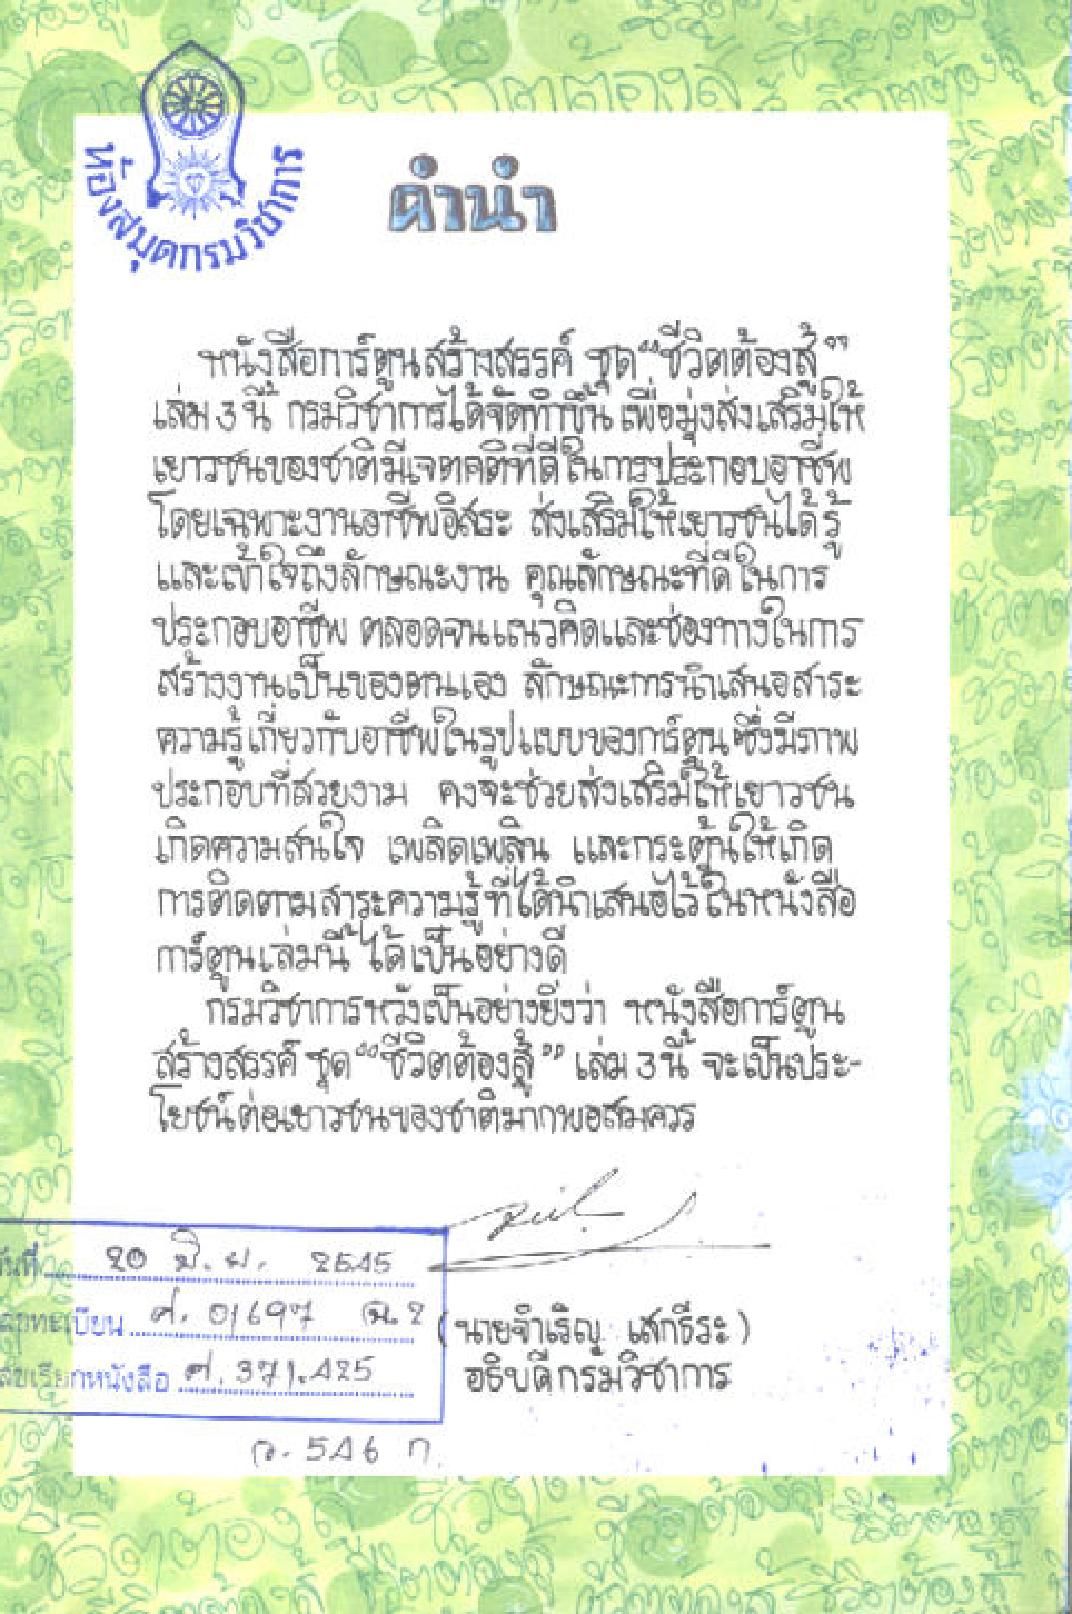 ห้องสมุดกรมวิชาการ
คำนำ
หนังสือการ์ตูนสร้างสรรค์ ชุด “ชีวิตต้องสู้”
เล่ม 3 นี้ กรมวิชาการได้จัดทำขึ้น เพื่อมุ่งส่งเสริมให้
เยาวชนของชาติมีเจตคติที่ดีในการประกอบอาชีพ
โดยเฉพาะงานอาชีพอิสระ ส่งเสริมให้เยาวชนได้รู้
และเข้าใจถึงลักษณะงาน คุณลักษณะที่ดีในการ
ประกอบอาชีพ ตลอดจนแนวคิดและช่องทางในการ
สร้างงานเป็นของตนเอง ลักษณะการนำเสนอสาระ
ความรู้เกี่ยวกับอาชีพในรูปแบบของการ์ตูน ซึ่งมีภาพ
ประกอบที่สวยงาม คงจะช่วยส่งเสริมให้เยาวชน
เกิดความสนใจ เพลิดเพลิน และกระตุ้นให้เกิด
การติดตามสาระความรู้ที่ได้นำเสนอไว้ในหนังสือ
การ์ตูนเล่มนี้ ได้เป็นอย่างดี
กรมวิชาการหวังเป็นอย่างยิ่งว่า หนังสือการ์ตูน
สร้างสรรค์ ชุด “ชีวิตต้องสู้” เล่ม 3 นี้ จะเป็นประ-
โยชน์ต่อเยาวชนของชาติมากพอสมควร
(นายจำเริญ เสกธีระ)
อธิบดีกรมวิชาการ
วันที่ 20 มิ.ย. 2545
เลขทะเบียน ศ. 01697 ฉ.2
เลขเรียกหนังสือ ศ. 371.425
546 ก